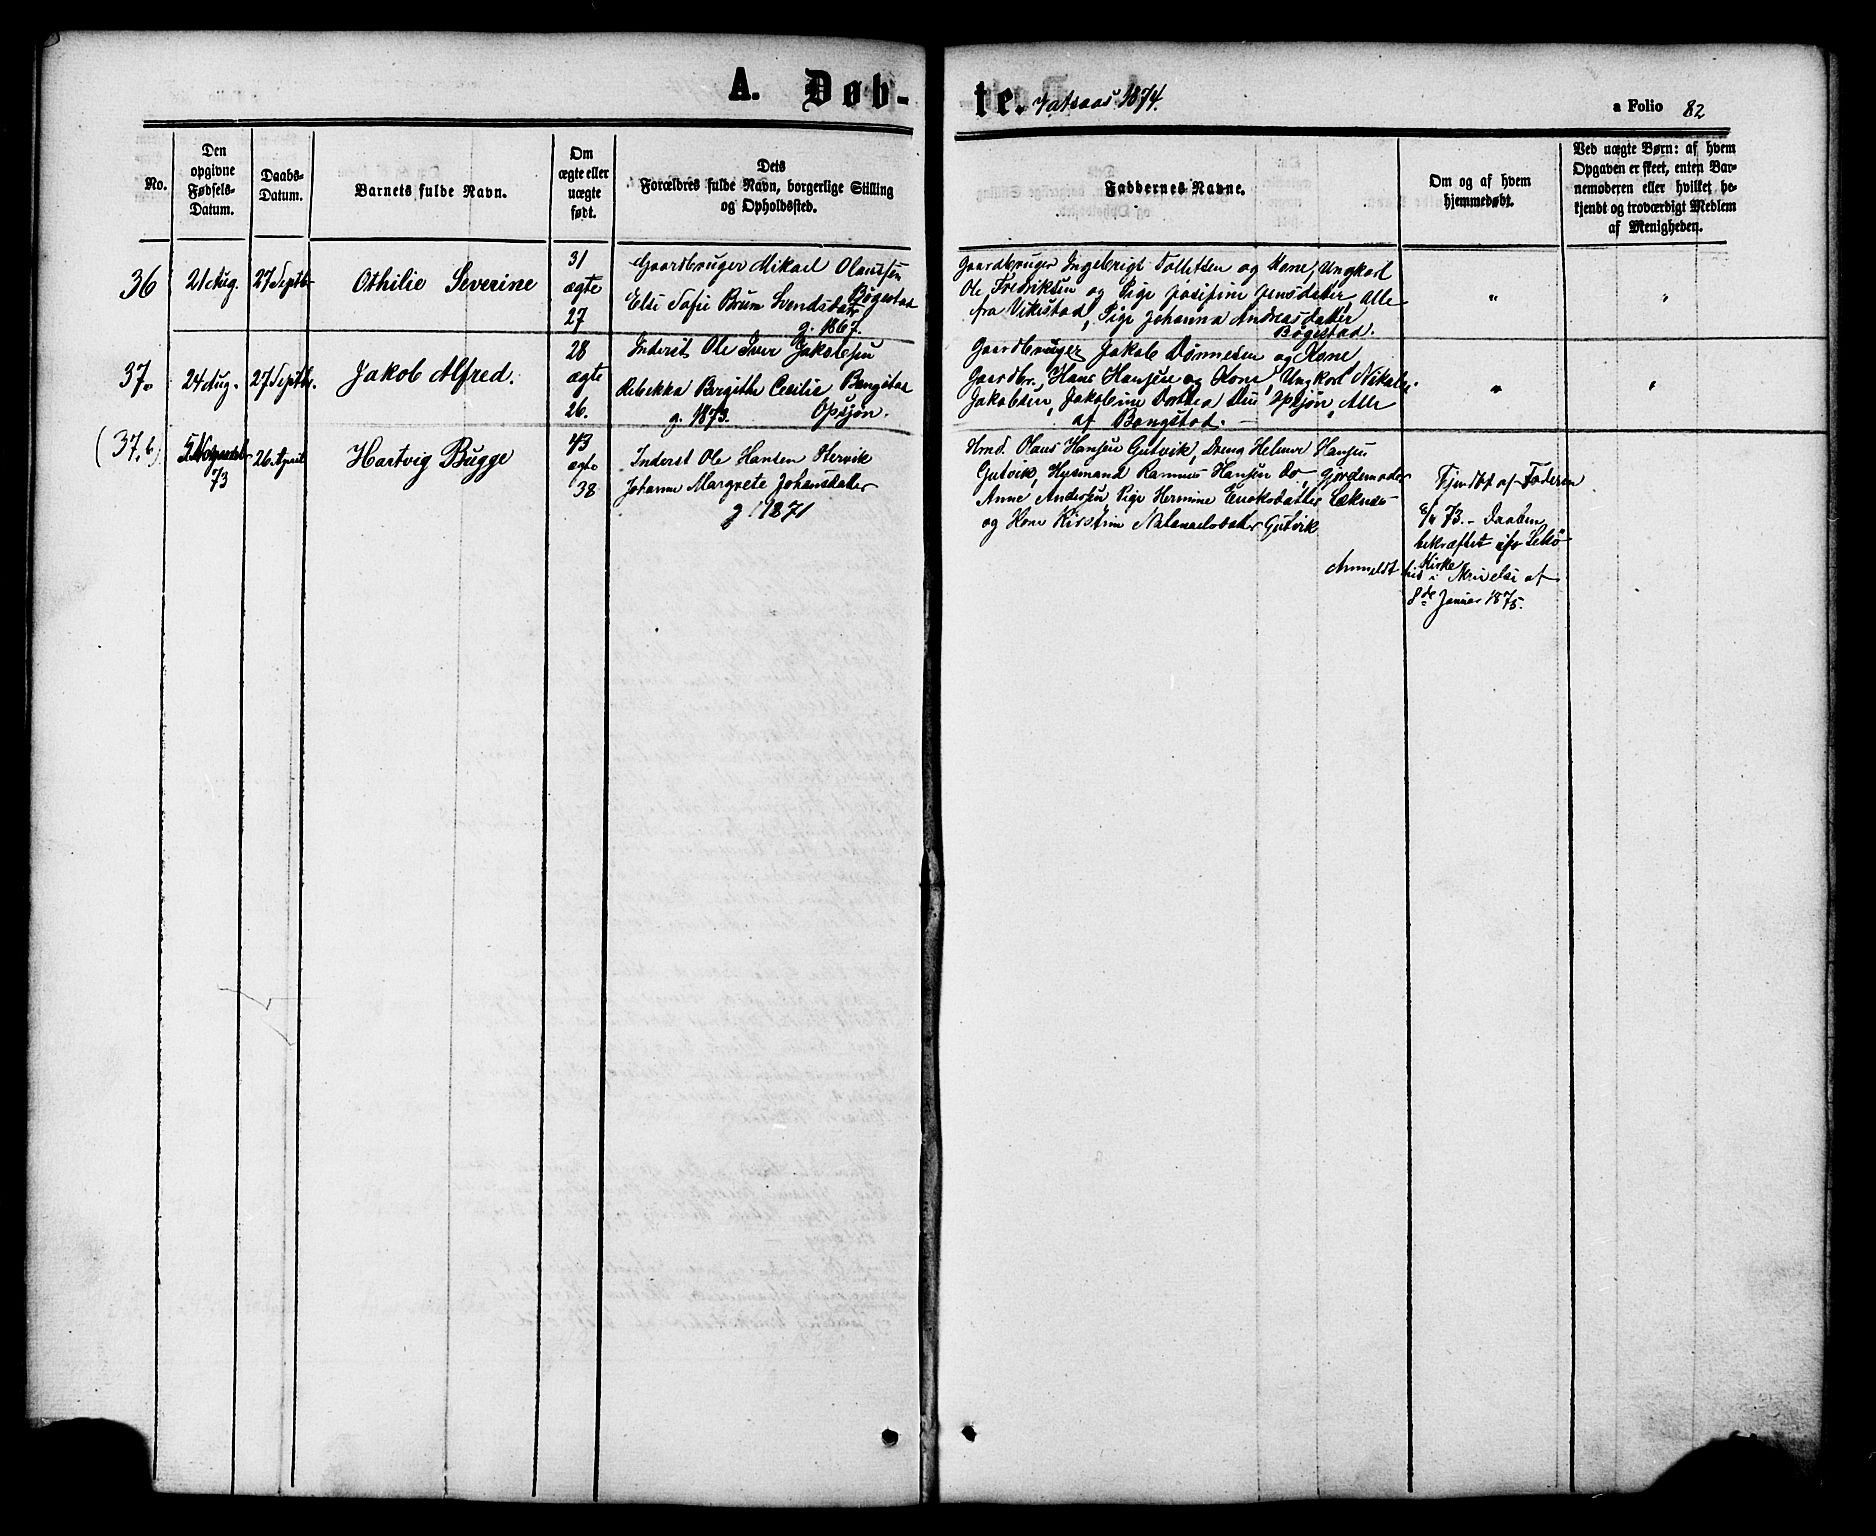 A. Døb-
te. Vatsaas 1874.
a Folio 82
No.
Den
opgivne
Fødsels-
Datum.
Daabs-
Datum.
Barnets fulde Navn.
Om
ægte eller
uægte
født.
Dets
Forældres fulde Navn, borgerlige Stilling
og Opholdssted.
Faddernes Navne.
Om og af hvem
hjemmedøbt.
Ved uægte Børn: af hvem
Opgaven er skeet, enten Bar-
nemoderen eller hvilket be-
kjendt og troværdigt Medlem
af Menigheden.
36
21 Aug.
27 Septb.
Othilie Severine
31
ægte
27
Gaardbruger Mikael Olaussen
Bøgestad
Elsi Sofie Brum Svendsdatr
g. 1867.
Gaardbruger Ingebrigt Tollefsen og Kone, Ungkarl
Ole Fredriksen og Pige Josefine Jensdatter, Alle
fra Vikestad, Pige Johanna Andreasdatter
Bøgestad.
"
"
37.
24 Aug.
27 Septbr.
Jakob Alfred.
28
ægte
26.
Inderst Ole Iver Jakobsen
Rebekka Birgithe Cecilie Bengtsd
g. 1873. Opsjøn.
Gaardbruger Jakob Dønnesen og Kone
Gaardbr. Hans Hansen og Kone, Ungkarl Nikolai
Jakobsen, Jakobine Dorthea Opsjøn, Alle
af Bangstad.
"
"
(37.b)
73
26 April
Hartvig Bugge
43
ægte
38
Inderst Ole Hansen Hervik
Johanne Margrete Johansdatter
g 1871
Hmd. Olaus Hansen Gutvik, Dreng Helmer Hansen
Gutvik, Husmand Rasmus Hansen do, Gjordemoder
Anne Andersen Pige Hermine Enoksdatter Leknes
og Kone Kirstine Natanaelsdatter Gutvik
Hjemdbt af Faderen
73. - Daaben
bekræftet i Lekø
Kirke
Anmeldt hid i Skrivelse af
8de Januar 1875.